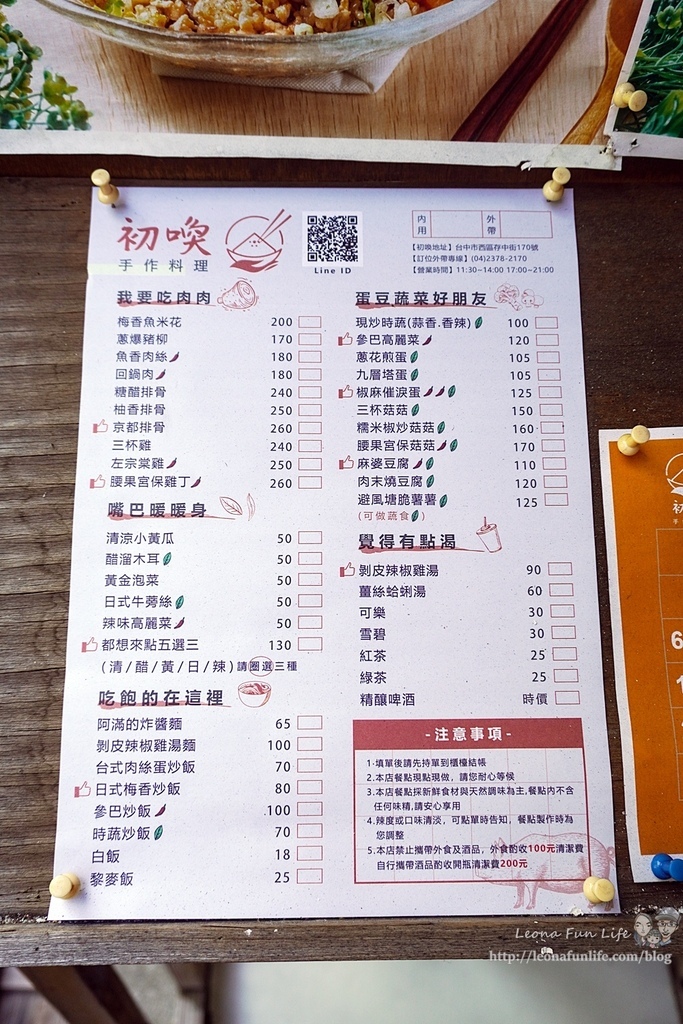 初喚
手作料理
Line ID
內用
外帶
【初喚地址】台中市西區存中街170號
【訂位外帶專線】(04)2378-2170
【營業時間】11:30~14:00 17:00~21:00
我要吃肉肉
梅香魚米花 200
蔥爆豬柳 170
魚香肉絲 180
回鍋肉 180
糖醋排骨 240
柚香排骨 250
京都排骨 260
三杯雞 240
左宗棠雞 250
腰果宮保雞丁 260
嘴巴暖暖身
清涼小黃瓜 50
醋溜木耳 50
黃金泡菜 50
日式牛蒡絲 50
辣味高麗菜 50
都想來點五選三 130
(清/醋/黃/日/辣)請圈選三種
吃飽的在這裡
阿滿的炸醬麵 65
剝皮辣椒雞湯麵 100
台式肉絲蛋炒飯 70
日式梅香炒飯 80
參巴炒飯 100
時蔬炒飯 70
白飯 18
黎麥飯 25
蛋豆蔬菜好朋友
現炒時蔬(蒜香.香辣) 100
參巴高麗菜 120
蔥花煎蛋 105
九層塔蛋 105
椒麻催淚蛋 125
三杯菇菇 150
糯米椒炒菇菇 160
腰果宮保菇菇 170
麻婆豆腐 110
肉末燒豆腐 120
避風塘脆薯薯 125
(可做蔬食)
覺得有點渴
剝皮辣椒雞湯 90
薑絲蛤蜊湯 60
可樂 30
雪碧 30
紅茶 25
綠茶 25
精釀啤酒 時價
-注意事項-
1.填單後請先持單到櫃檯結帳
2.本店餐點現點現做，請您耐心等候
3.本店餐點採新鮮食材與天然調味為主,餐點內不含
任何味精,請安心享用
4.辣度或口味清淡，可點單時告知，餐點製作時為
您調整
5.本店禁止攜帶外食及酒品，外食酌收100元清潔費
自行攜帶酒品酌收開瓶清潔費200元
Leona Fun Life
http://leonafunlife.com/blog